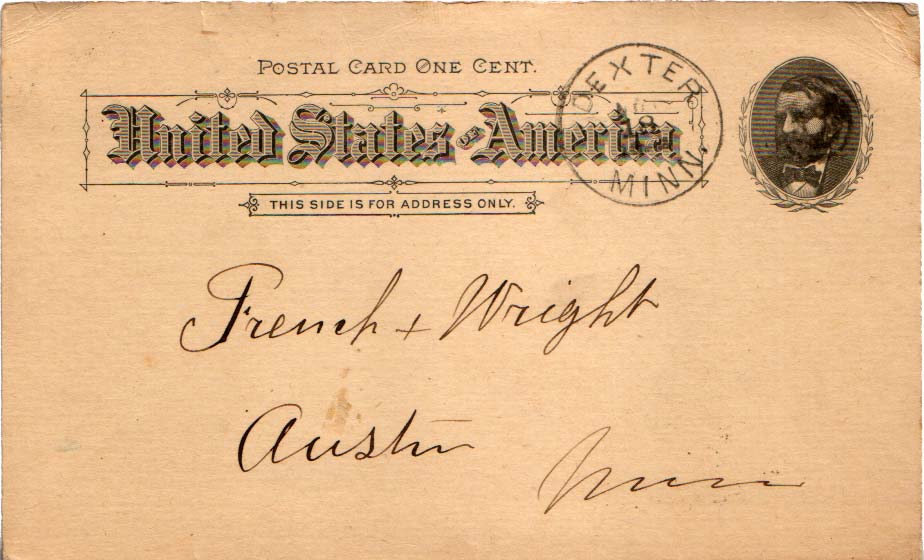 POSTAL CARD ONE CENT.
United States of America
DEXTER
8
MINN.
THIS SIDE IS FOR ADDRESS ONLY.
French + Wright
Austin
Minn